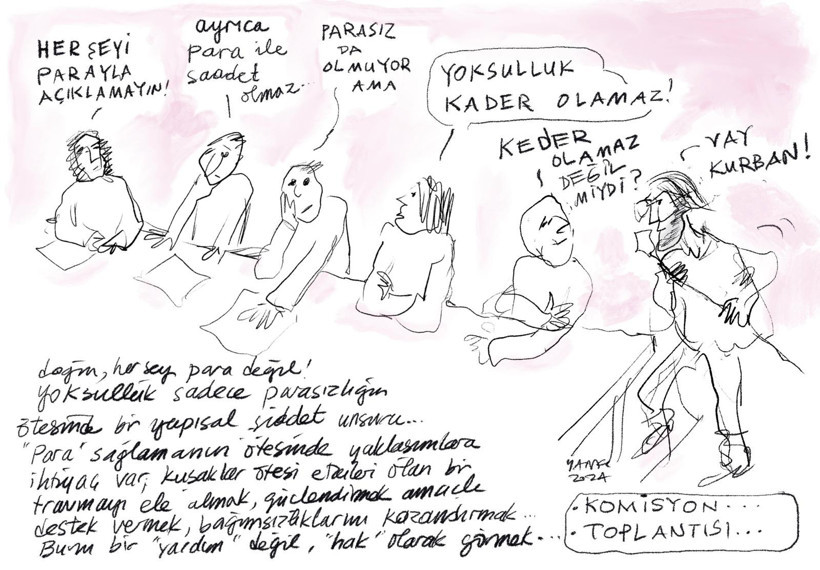 HER ŞEYİ
PARAYLA
AÇIKLAMAYIN!
ayrıca
para ile
saadet
olmaz...
PARASIZ
DA
OLMUYOR
AMA
YOKSULLUK
KADER OLAMAZ!
KEDER
OLAMAZ
DEĞİL
MİYDİ?
VAY
KURBAN!
doğru, her şey para değil!
yoksulluk sadece parasızlığın
ötesinde bir yapısal şiddet unsuru...
"Para" sağlamanın ötesinde yaklaşımlara
ihtiyaç var, kuşaklar ötesi etkileri olan bir
travmayı ele almak, güçlendirmek amacıyla
destek vermek, bağımsızlıklarını kazandırmak...
Bunu bir "yardım" değil, "hak" olarak görmek...
2024
·KOMİSYON...
·TOPLANTISI...